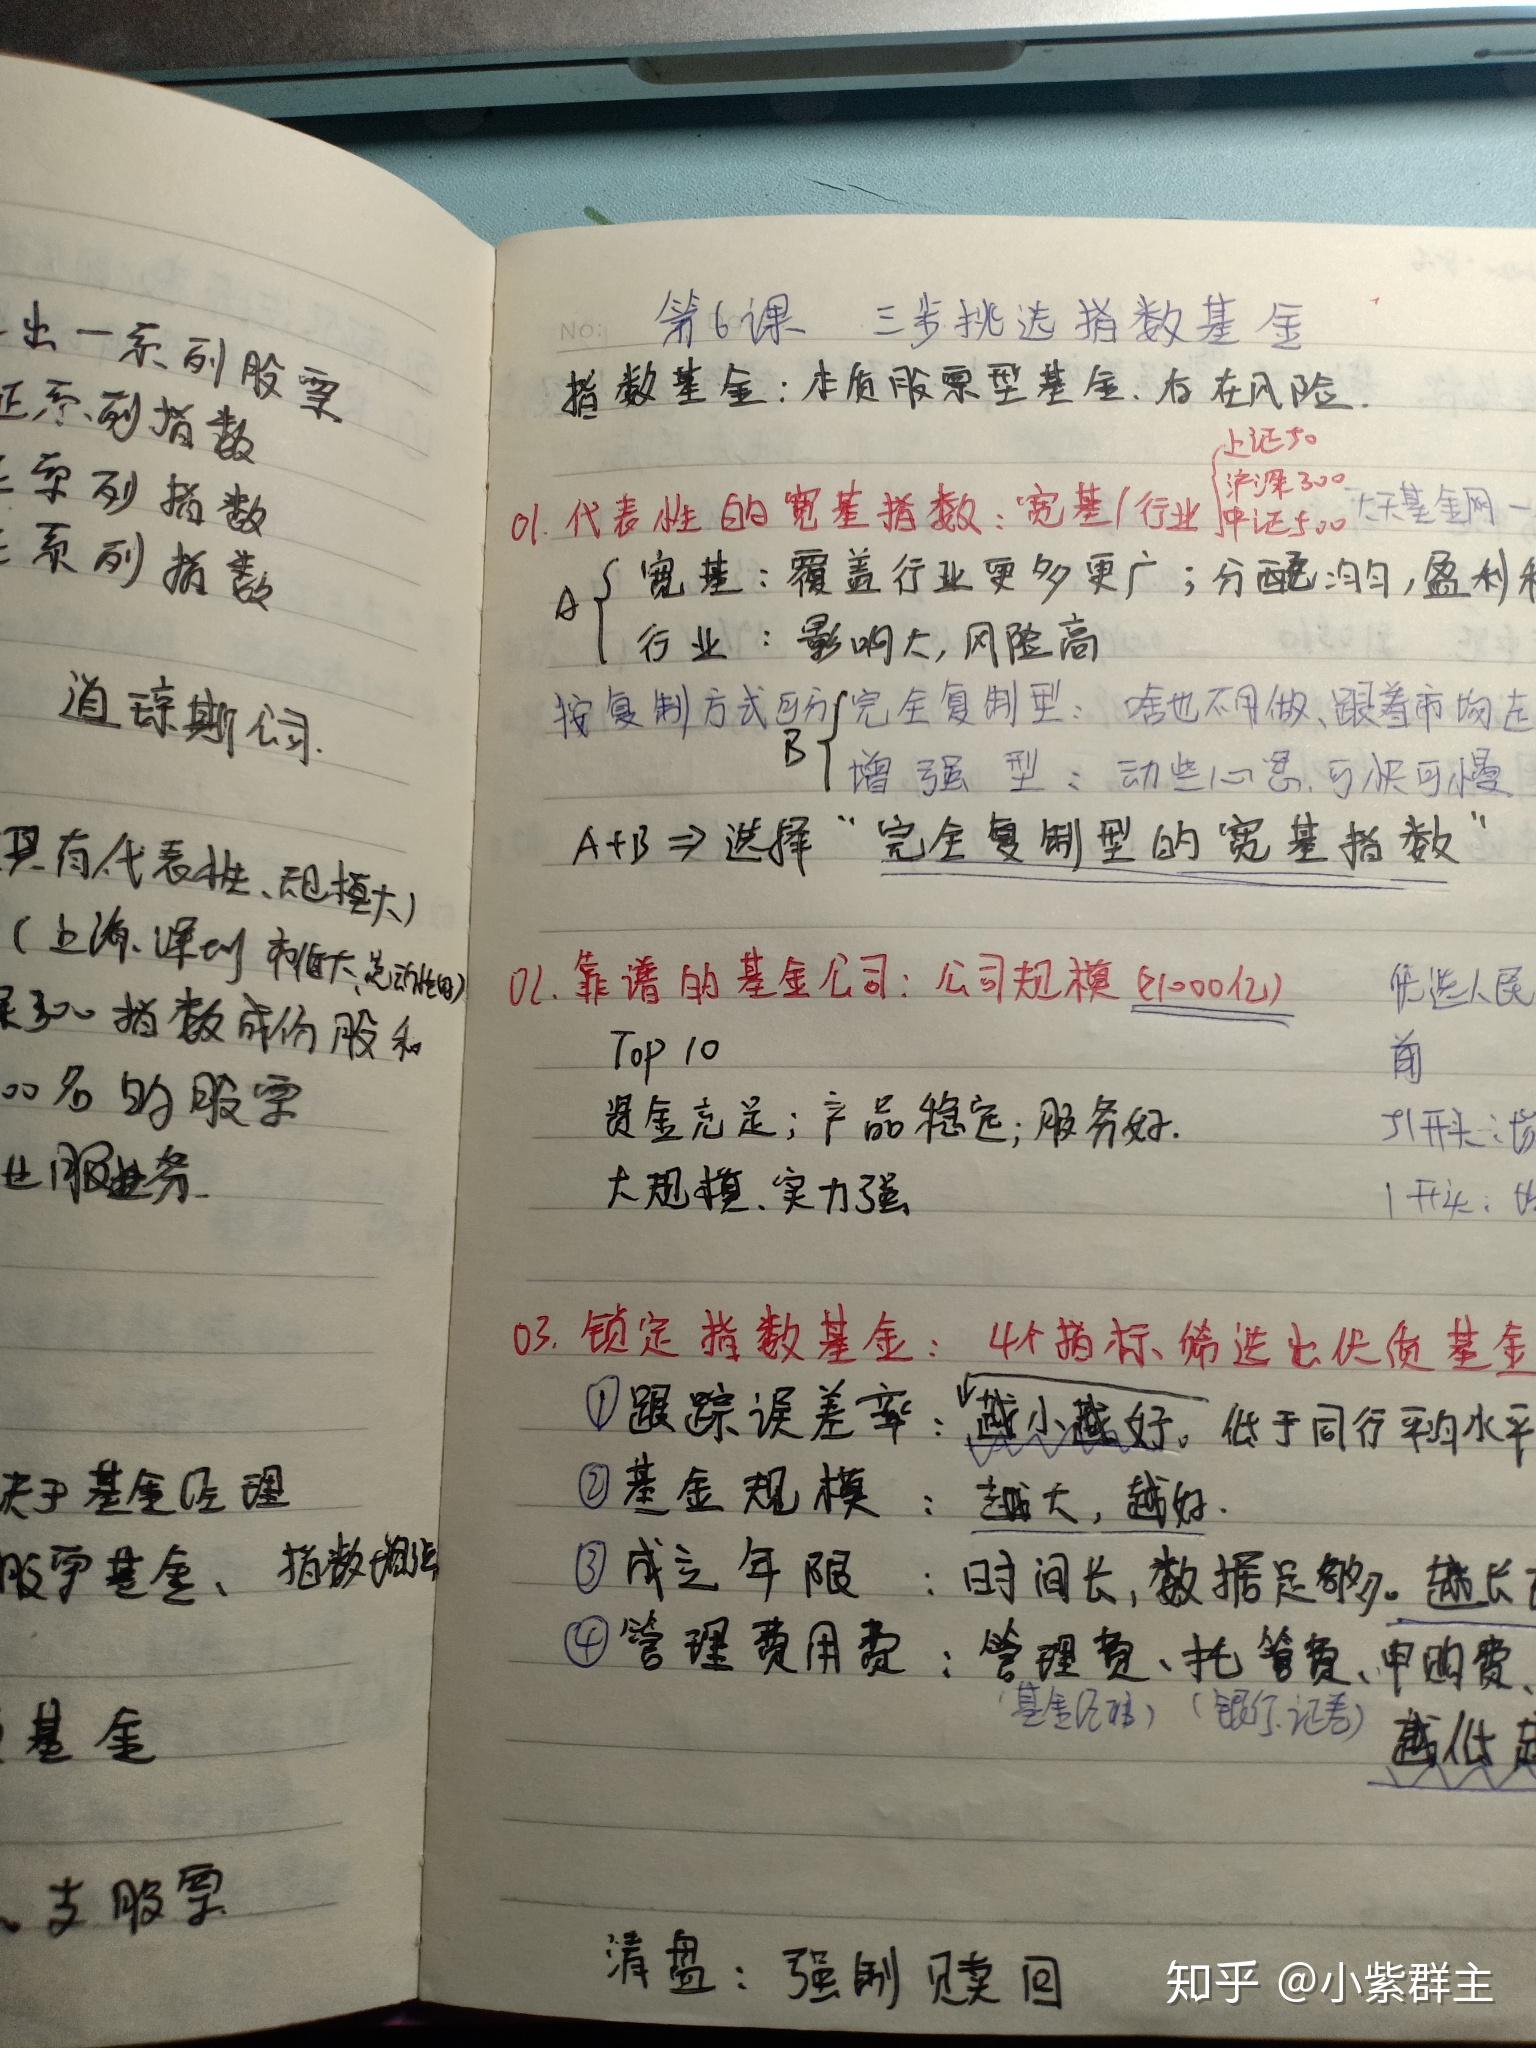 出一系列股票
证系列指数
系列指数
系列指数
道琼斯公司.
具有代表性、规模大)
(上海、深圳 市值大、流动性好)
300指数成份股和
00名的股票
业服业务
决于基金经理
股票基金、指数增强
基金
支股票
NO:
第6课 三步挑选指数基金
指数基金:本质股票型基金.存在风险.
01.代表性的宽基指数:宽基/行业
上证50
沪深300
中证500
天天基金网一
A
宽基:覆盖行业更多更广;分配均匀,盈利
行业:影响大,风险高
按复制方式区分
B
完全复制型:啥也不用做、跟着市场走
增强型:动些心思.可快可慢
A+B⇒选择“完全复制型的宽基指数”
02.靠谱的基金公司:公司规模(≥1000亿)
Top 10
资金充足;产品稳定;服务好.
大规模、实力强
优选人民
前
51开头:场
1开头:
03.锁定指数基金:4个指标、筛选出优质基金
①跟踪误差率:越小越好。低于同行平均水平
②基金规模:越大,越好.
③成立年限:时间长,数据足够。越长
④管理费用费:管理费、托管费、申购费、
(基金经理)(银行.证券)
越低越
清盘:强制赎回
知乎 @小紫群主